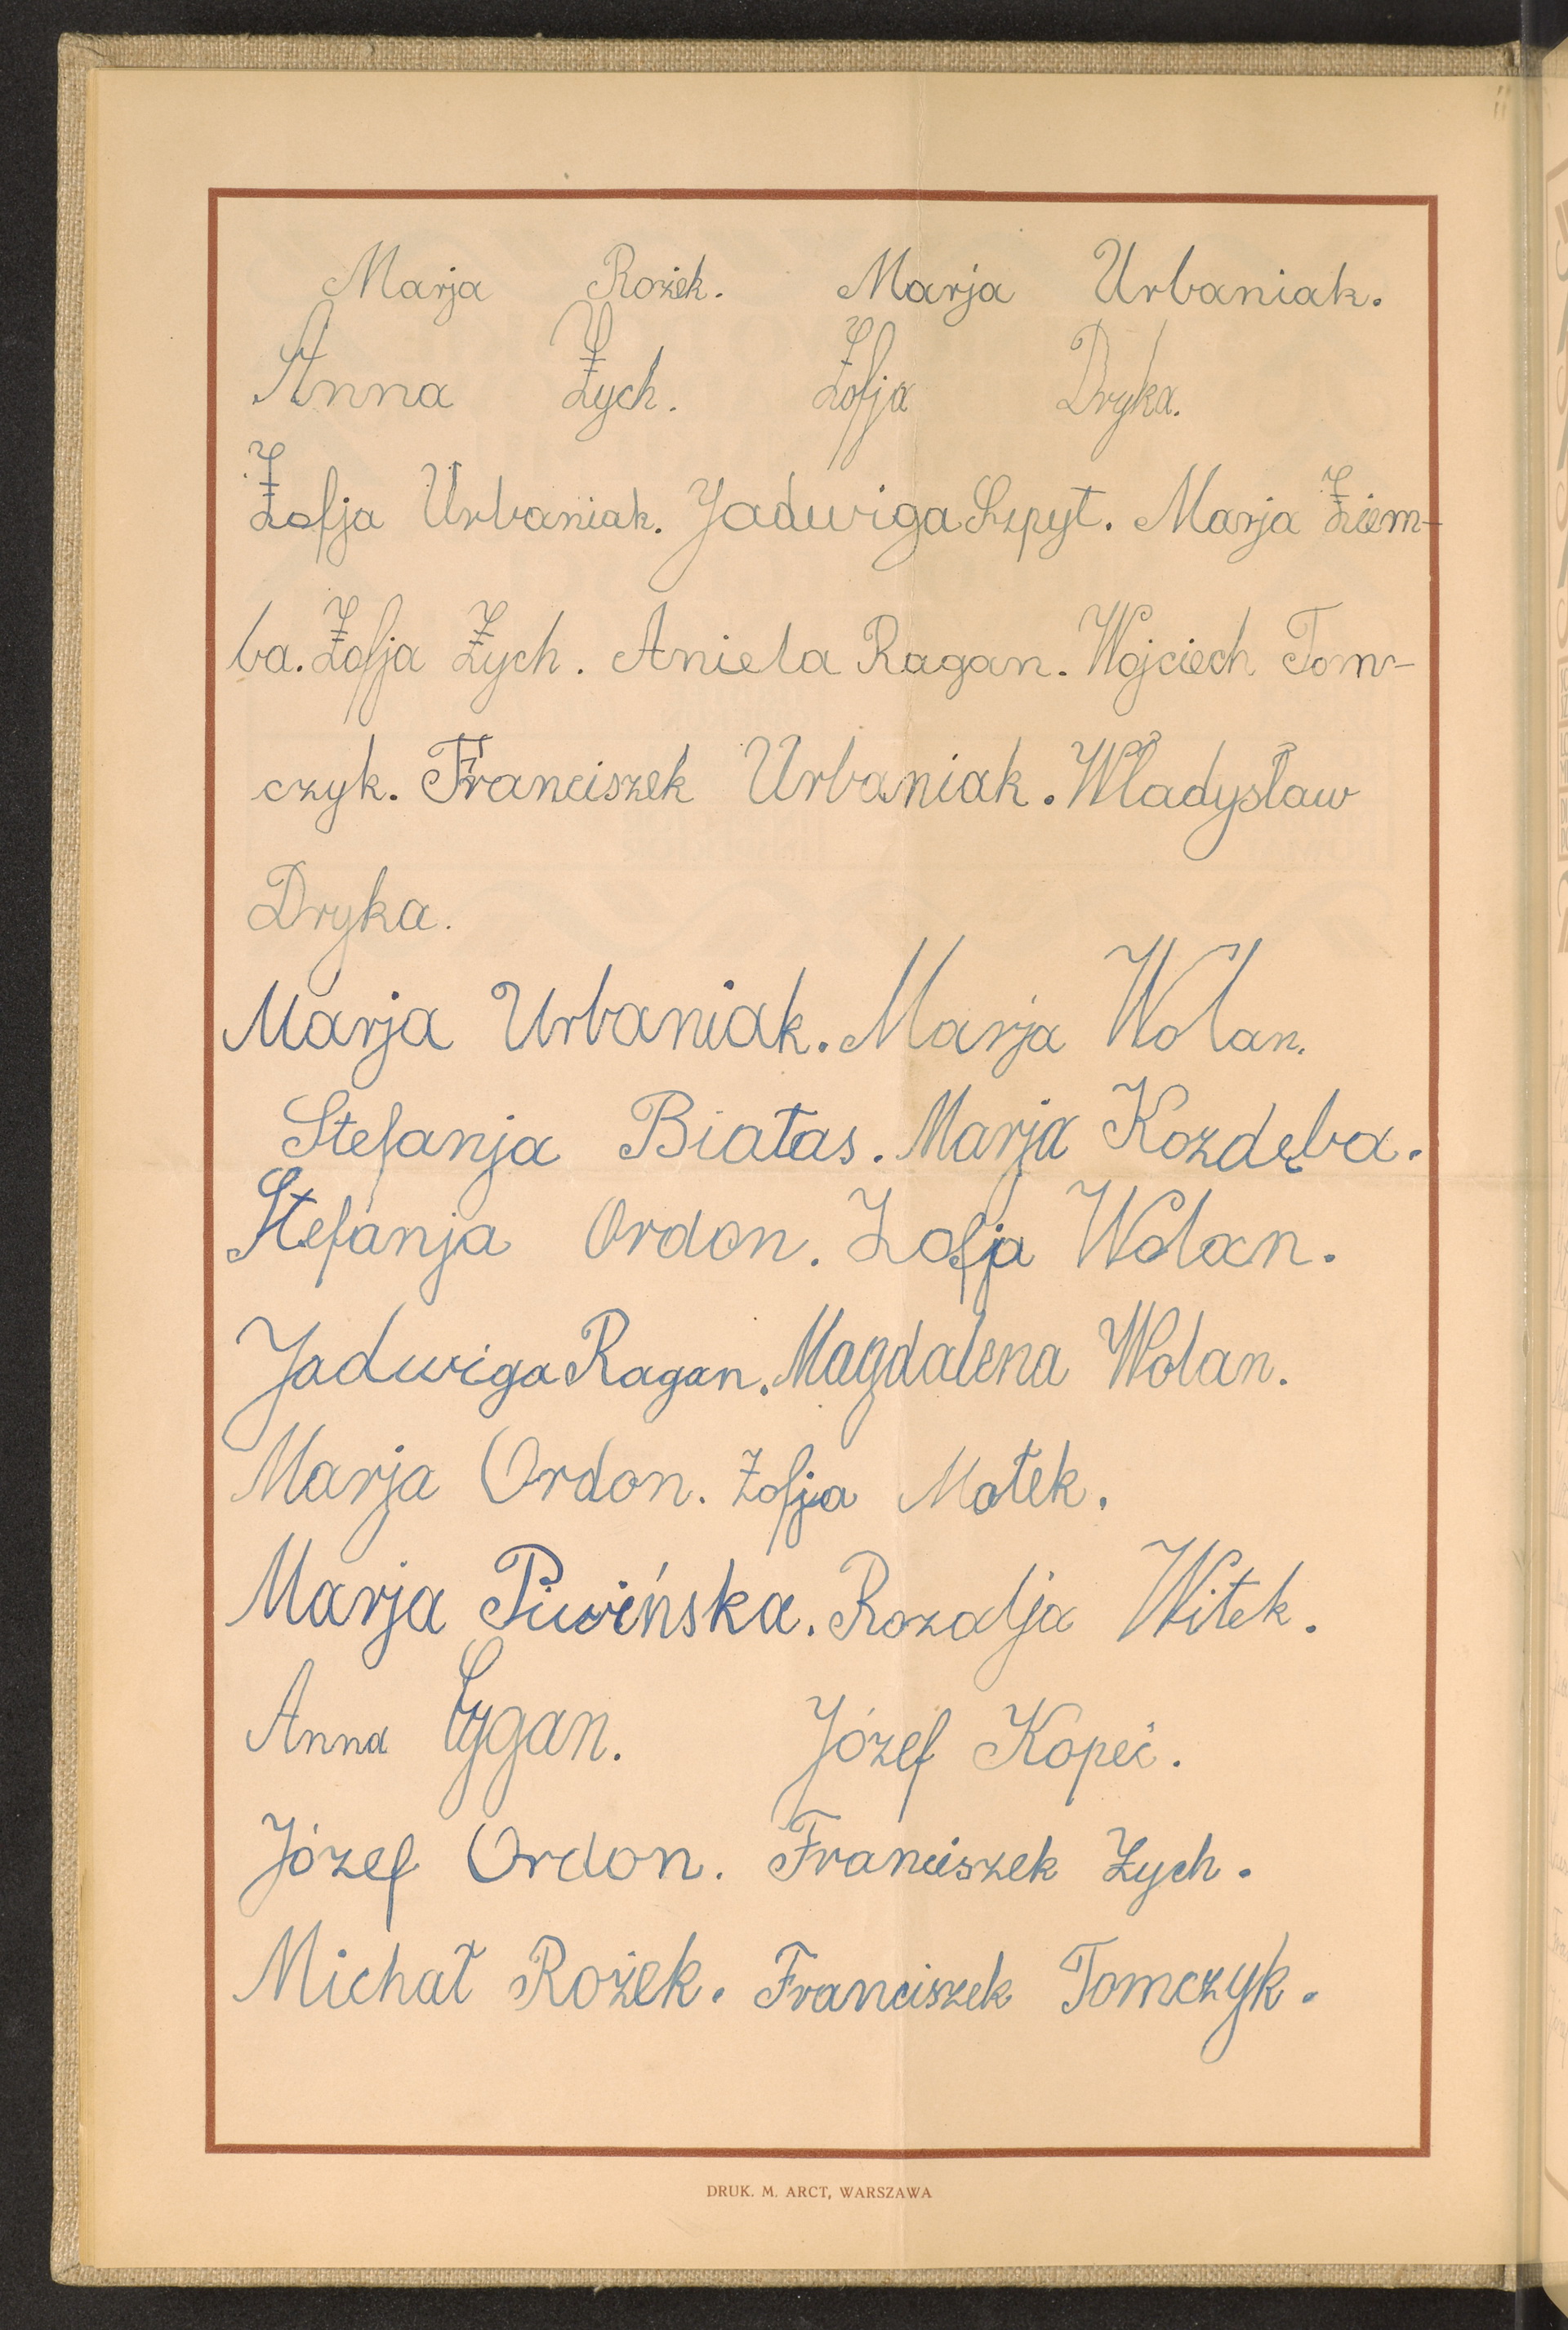 Marja Rożek. Marja Urbaniak.
Anna Zych. Zofja Dryka.
Zofja Urbaniak. Jadwiga Szpyt. Marja Ziem-
ba. Zofja Zych. Aniela Ragan. Wojciech Tom-
czyk. Franciszek Urbaniak. Władysław
Dryka.
Marja Urbaniak. Marja Wolan.
Stefanja Białas. Marja Kozdęba.
Stefanja Ordon. Zofja Wolan.
Jadwiga Ragan. Magdalena Wolan.
Marja Ordon. Zofja Małek.
Marja Piwińska. Rozalja Witek.
Anna Cygan. Józef Kopeć.
Józef Ordon. Franciszek Zych.
Michał Rożek. Franciszek Tomczyk.
DRUK. M. ARCT, WARSZAWA